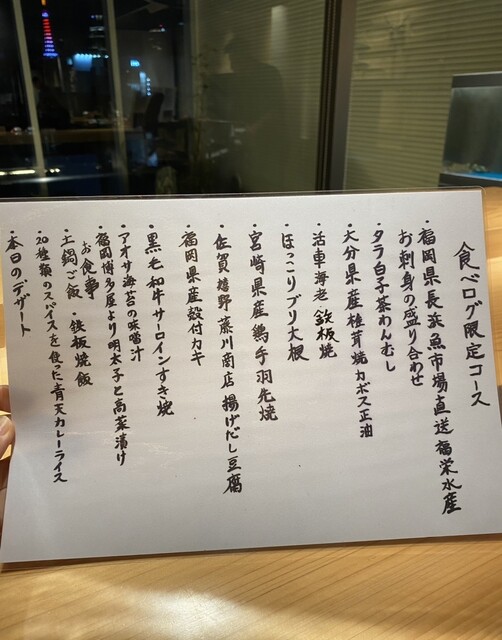 食べログ限定コース
・福岡県長浜魚市場直送福栄水産
お刺身の盛り合わせ
・タラ白子茶わんむし
・大分県産椎茸焼カボス正油
・活車海老鉄板焼
・ほっこりブリ大根
・宮崎県産鶏手羽先焼
・佐賀嬉野藤川商店 揚げだし豆腐
・福岡県産殻付カキ
・黒毛和牛サーロインすき焼
・アオサ海苔の味噌汁
・福岡博多屋より明太子と高菜漬け
お食事
・土鍋ご飯 ・鉄板焼飯
・20種類のスパイスを使った青天カレーライス
・本日のデザート